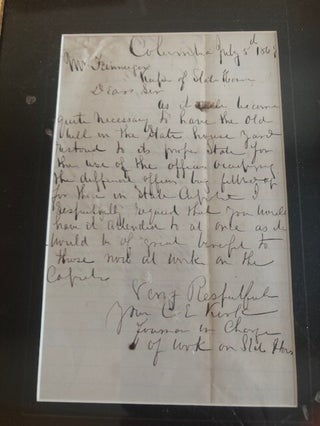 Columbia July 5th 1868
Mr Finnegan
Keeper of State House
Dear Sir
as it has become
quite necessary to have the old
Well in the State house yard
restored to its proper State for
the use of the officers occupying
the different offices
for them in State Capitol I
Respectfully request that you would
have it attended to at once as it
would be of great benefit to
those now at work on the
Capitol
Very Respectful
Your C E Kirk
foreman in Charge
of work on State Hous